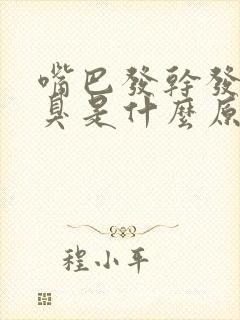 嘴巴發幹發
臭是什麼原
程小平